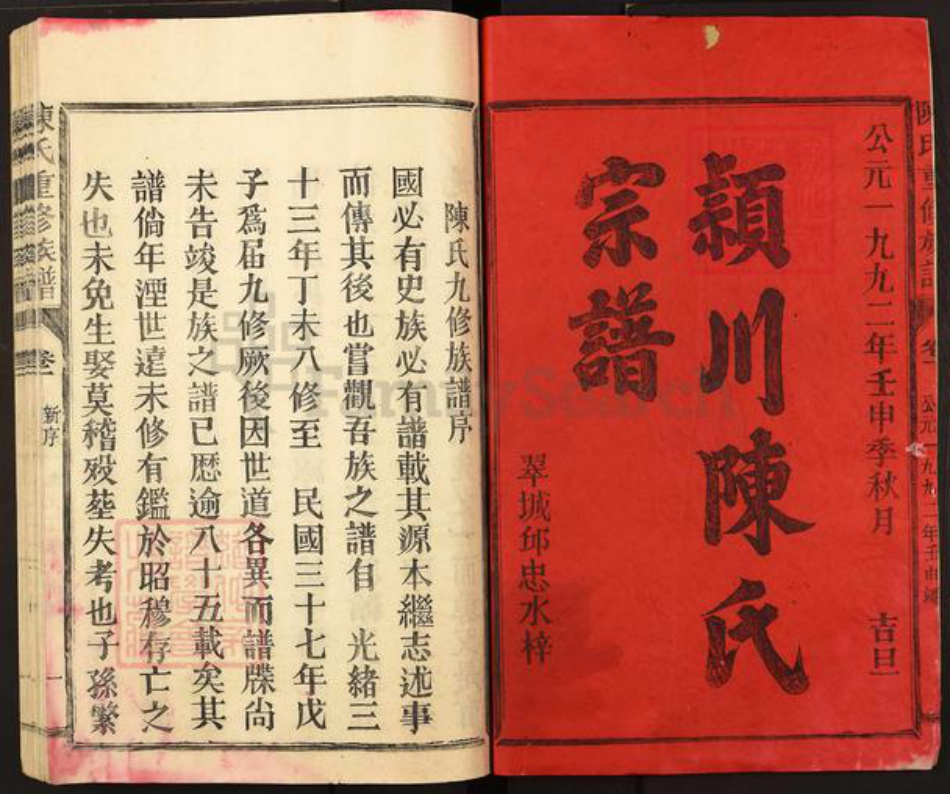 公元一九九二年壬申季秋月 吉旦
潁川陳氏
宗譜
翠城邱忠水梓
陳氏九修族譜序
國必有史族必有譜載其源本繼志述事
而傳其後也嘗觀吾族之譜自 光緒三
十三年丁未八修至 民國三十七年戊
子爲屆九修厥後因世道各異而譜牒尙
未告竣是族之譜已歷逾八十五載矣其
譜倘年湮世遠未修有鑑於昭穆存亡之
失也未免生娶莫稽歿塟失考也子孫繁
陳氏重修族譜 卷一 新序 一
FamilySearch